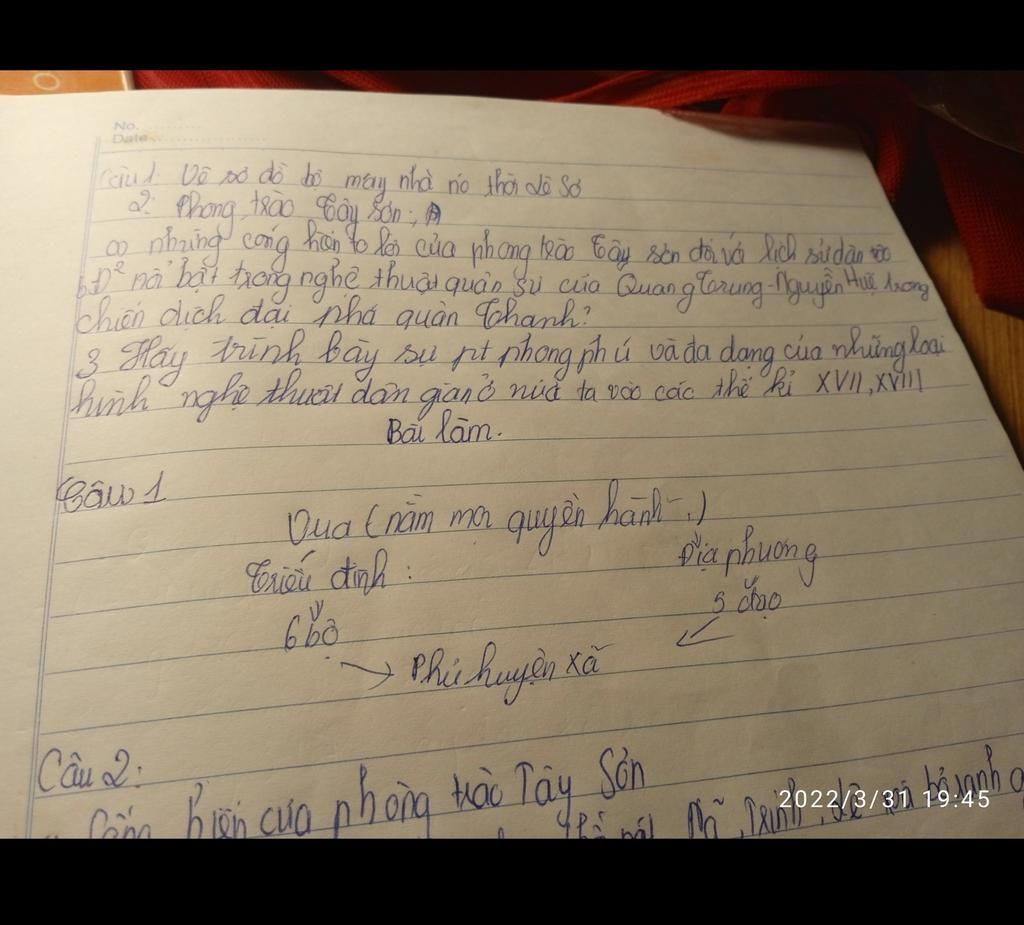 No.
Date
Câu 1: Vẽ sơ đồ bộ máy nhà nc thời Lê Sơ
2: Phong trào Tây Sơn:
a) những cống hiến to lớn của phong trào Tây Sơn đối với lịch sử dân tộc
b, Đ² nổi bật trong nghệ thuật quân sự của Quang Trung - Nguyễn Huệ trong
chiến dịch đại phá quân Thanh?
3 Hãy trình bày sự pt phong phú và đa dạng của những loại
hình nghệ thuật dân gian ở nước ta vào các thế kỉ XVII, XVIII
Bài làm.
Câu 1
Vua (nắm mọi quyền hành)
Triều đình :
Địa phương
6 bộ
5 đạo
Phủ huyện xã
Câu 2:
Cống hiến của phong trào Tây Sơn
Trịnh, Lê xoá bỏ ranh
2022/3/31 19:45